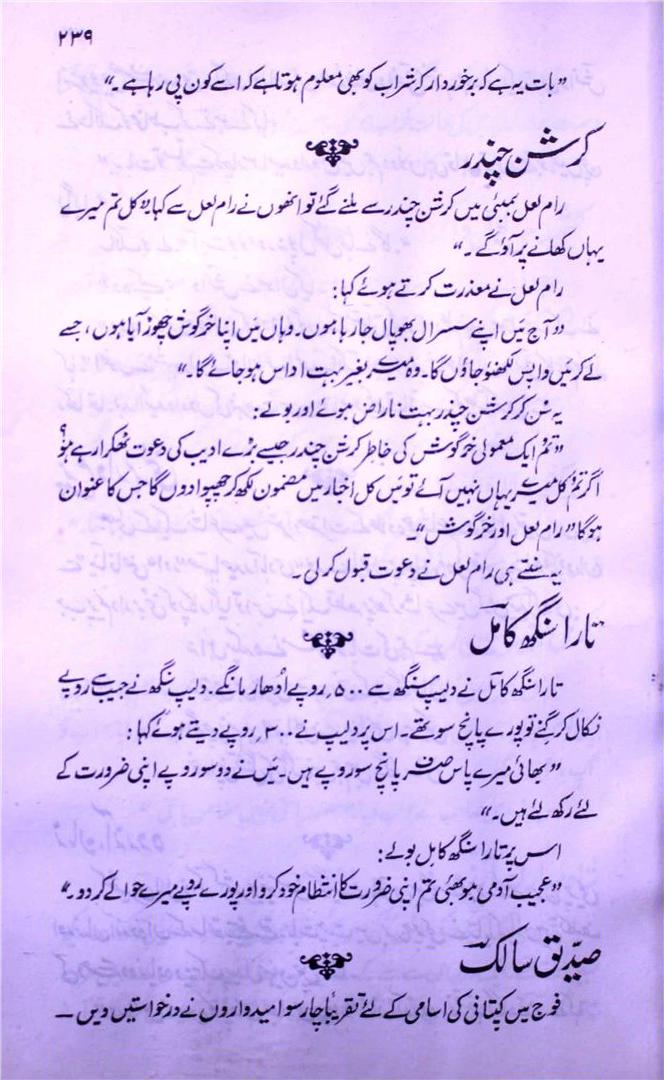 ۲۳۹
”بات یہ ہے کہ برخوردار کہ شراب کو بھی معلوم ہوتا ہے کہ اسے کون پی رہا ہے۔“
کرشن چندر
رام لعل بمبئی میں کرشن چندر سے ملنے گئے تو انھوں نے رام لعل سے کہا ”کل تم میرے
یہاں کھانے پر آؤ گے۔“
رام لعل نے معذرت کرتے ہوئے کہا:
”آج میں اپنے سسرال بھوپال جا رہا ہوں۔ وہاں میں اپنا خرگوش چھوڑ آیا ہوں، جسے
لے کر میں واپس لکھنؤ جاؤں گا۔ وہ میرے بغیر بہت اداس ہو جائے گا۔“
یہ سُن کر کرشن چندر بہت ناراض ہوئے اور بولے:
”تم ایک معمولی خرگوش کی خاطر کرشن چندر جیسے بڑے ادیب کی دعوت ٹھکرا رہے ہو؟
اگر تم کل میرے یہاں نہیں آئے تو میں کل اخبار میں مضمون لکھ کر چھپوا دوں گا جس کا عنوان
ہوگا ”رام لعل اور خرگوش“۔
یہ سنتے ہی رام لعل نے دعوت قبول کر لی۔
تارا سنگھ کامل
تارا سنگھ کامل نے دلیپ سنگھ سے ۵۰۰ روپے اُدھار مانگے۔ دلیپ سنگھ نے جیب سے روپے
نکال کر گنے تو پورے پانچ سو تھے۔ اس پر دلیپ نے ۳۰۰ روپے دیتے ہوئے کہا:
”بھائی میرے پاس صرف پانچ سو روپے ہیں۔ میں نے دو سو روپے اپنی ضرورت کے
لئے رکھ لئے ہیں۔“
اس پر تارا سنگھ کامل بولے:
”عجیب آدمی ہو بھئی تم اپنی ضرورت کا انتظام خود کرو اور پورے روپے میرے حوالے کر دو۔“
صدّیق سالک
فوج میں کپتانی کی اسامی کے لئے تقریباً چار سو امیدواروں نے درخواستیں دیں۔